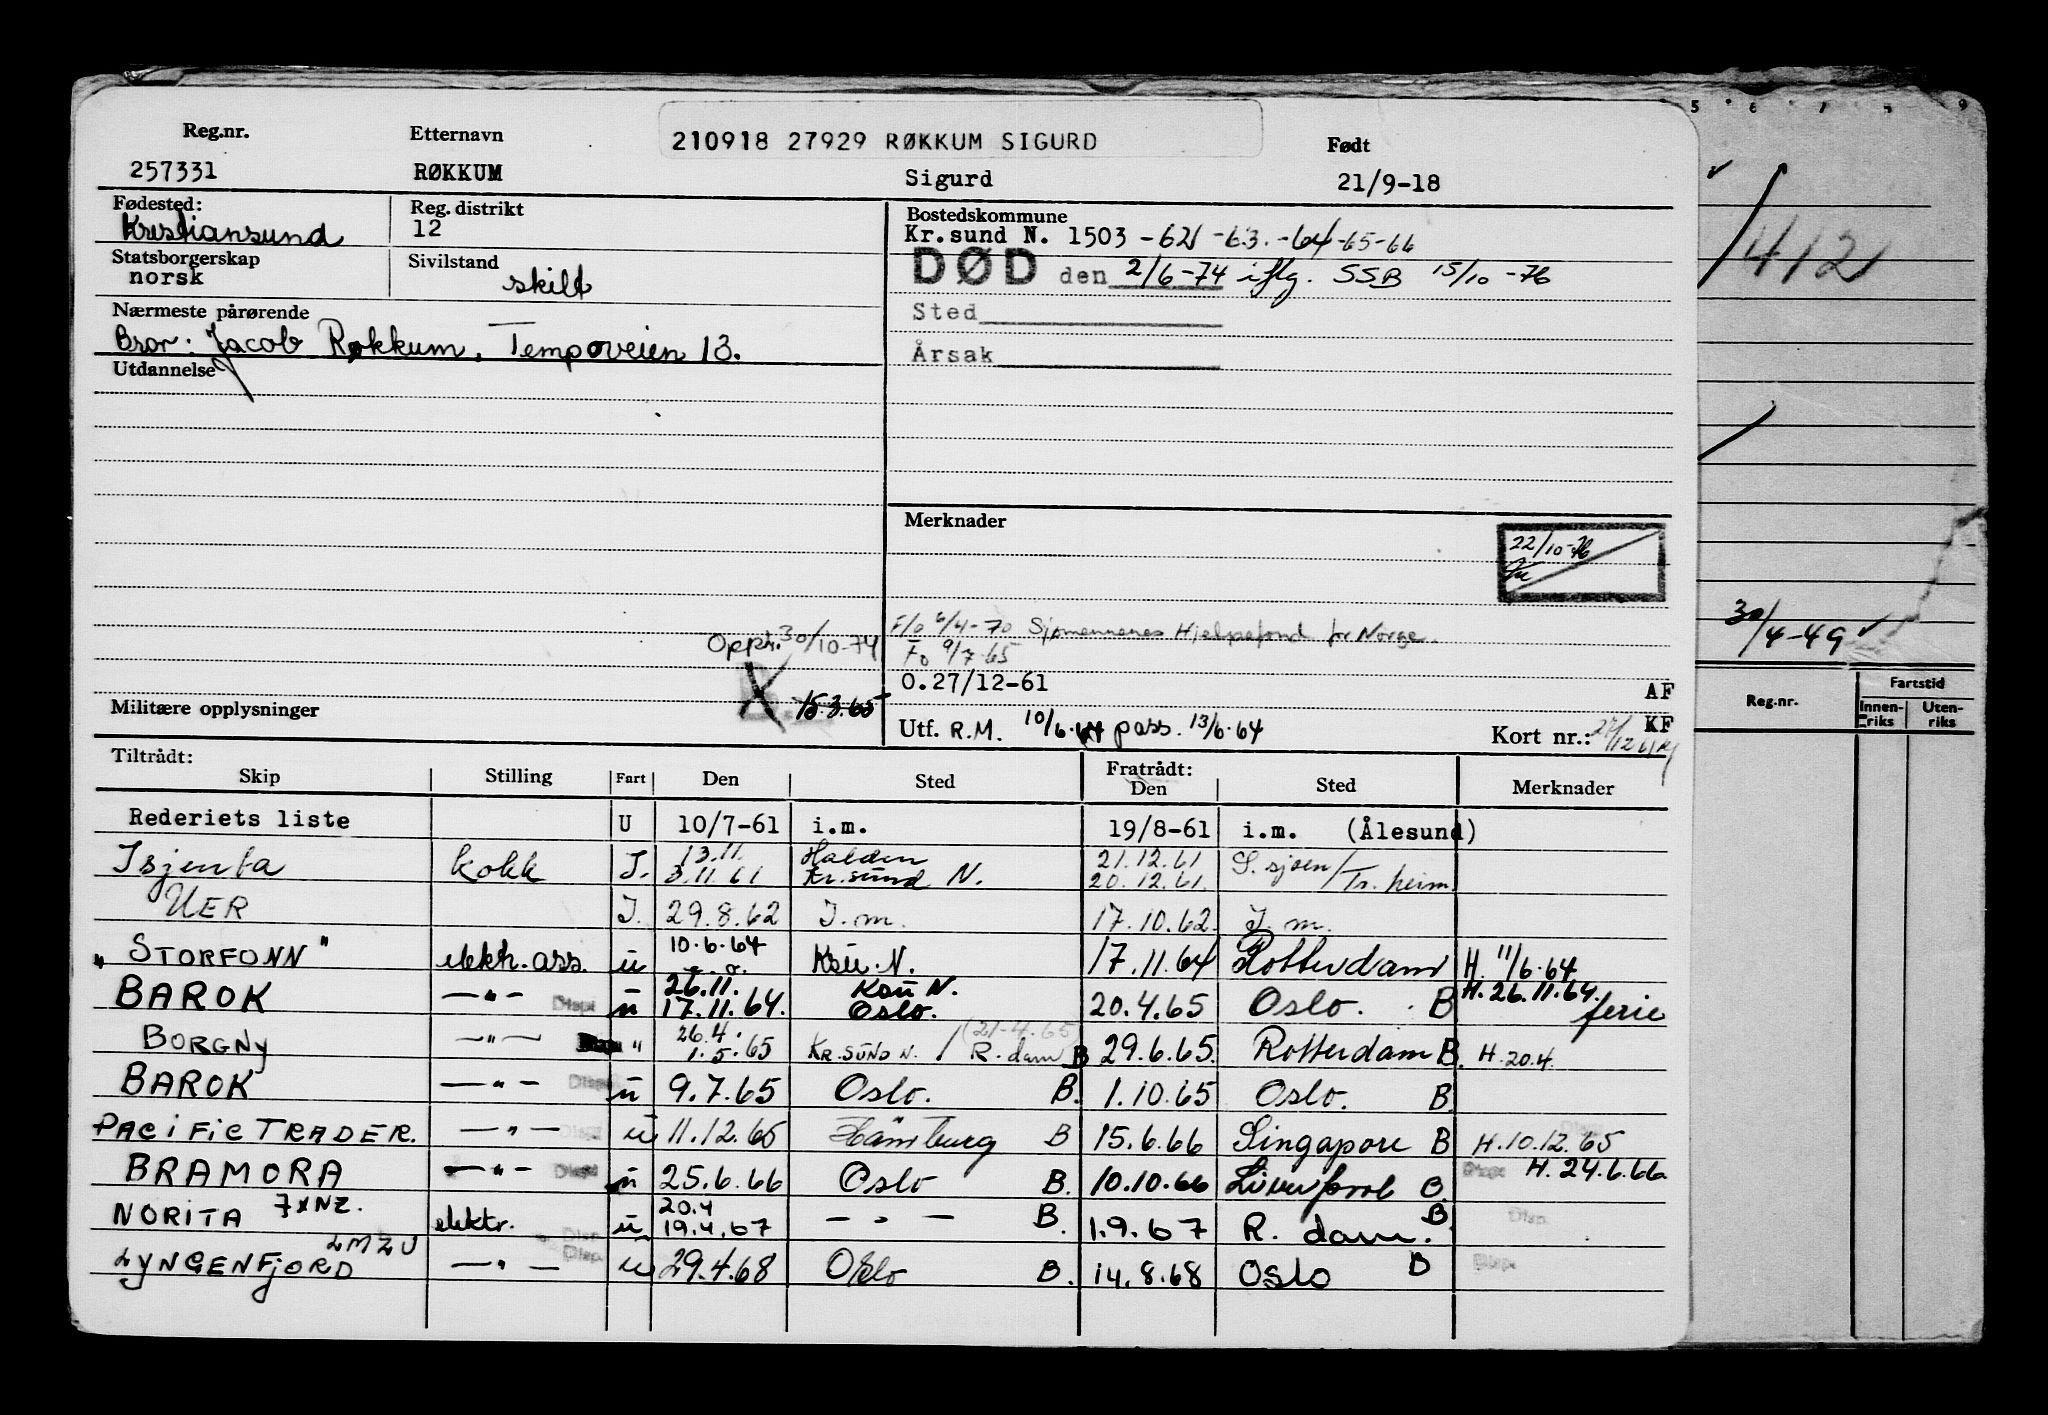 210918 27929 RØKKUM SIGURD
Reg.nr. Etternavn Født
257331 RØKKUM Sigurd 21/9-18
Fødested: Reg. distrikt Bostedskommune
Kristiansund 12 Kr.sund N. 1503 -62 -63. -64-65-66
Statsborgerskap Sivilstand
norsk skilt
DØD den 2/6-74 iflg. SSB 15/10-76
Sted
Nærmeste pårørende
Bror: Jacob Røkkum, Tempoveien 13.
Årsak
Utdannelse
Merknader
22/10-76
F/o 6/4-70 Sjømennenes Hjelpefond for Norge.
Fo 9/7-65
Opph. 30/10-74
O.27/12-61
15.3.65
AF
Militære opplysninger
Utf. R.M. 10/6.64 pass. 13/6.64
KF
Kort nr.:
Tiltrådt: Fratrådt:
Skip Stilling Fart Den Sted Den Sted Merknader
Rederiets liste U 10/7-61 i.m. 19/8-61 i.m. (Ålesund)
13.11. Halden 21.12.61
Isjenta kokk J. 3.11.61 Kr.sund N. 20.12.61. S.sjøen/Tr.heim.
UER J. 29.8.62 J.m. 17.10.62. J.m.
10.6.64
"STORFONN" elektr. ass. u Ksu. N. 17.11.64 Rotterdam H. 11/6.64
26.11. Ksu N. H. 26.11.64.
BAROK —"— Disp u 17.11.64. Oslo. 20.4.65 Oslo. B ferie
26.4. (21-4.65)
BORGNY —"— " 1.5.65 KR.SUND N. / R.dam B 29.6.65. Rotterdam B. H. 20.4.
BAROK —"— Disp u 9.7.65 Oslo. B. 1.10.65 Oslo. B.
PACIFIC TRADER. —"— Disp u 11.12.65 Hamburg B 15.6.66 Singapore B H.10.12.65
BRAMORA —"— Disp u 25.6.66 Oslo B. 10.10.66 Liverpool B. Disp H. 24.6.66
20.4
NORITA JXNZ. elektr. Disp. u 19.4.67 —"— B. 1.9.67 R. dam. B. Disp.
LMZU
LYNGENFJORD —"— Disp. u 29.4.68 Oslo B. 14.8.68 Oslo B Disp.
5 6 7 8 9
412
30/4-49
Reg.nr. Fartstid
Innenriks Utenriks